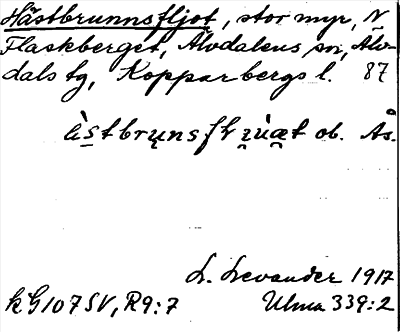 Hästbrunnsfljot, stor myr, N
Flaskberget, Älvdalens sn, Älv-
dals tg, Kopparbergs l. 87
ob. Ås.
L. Levander 1917
kG 107 SV, R9:7 Ulma 339:2